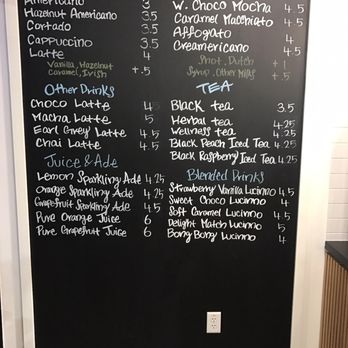 Americano 3
Hazelnut Americano 3.5
Cortado 3
Cappuccino 3.5
Latte 4
Vanilla, Hazelnut
Caramel, Irish +.5
Other Drinks
Choco Latte 4.5
Macha Latte 5
Earl Grey Latte 4.5
Chai Latte 4.5
Juice & Ade
Lemon Sparkling Ade 4.25
Orange Sparkling Ade 4.25
Grapefruit Sparkling Ade 4.5
Pure Orange Juice 6
Pure Grapefruit Juice 6
W. Choco Mocha 4.5
Caramel Macchiato 4.5
Affogato 4
Creamericano 4.5
Shot, Dutch +1
Syrup, Other Milks +.5
TEA
Black tea 3.5
Herbal tea 4.25
Wellness tea 4.25
Black Peach Iced Tea 4.25
Black Raspberry Iced Tea 4.25
Blended Drinks
Strawberry/Vanilla Lucinno 4.5
Sweet Choco Lucinno 4
Soft Caramel Lucinno 4.5
Delight Match Lucinno 5
Bong Bong Lucinno 4